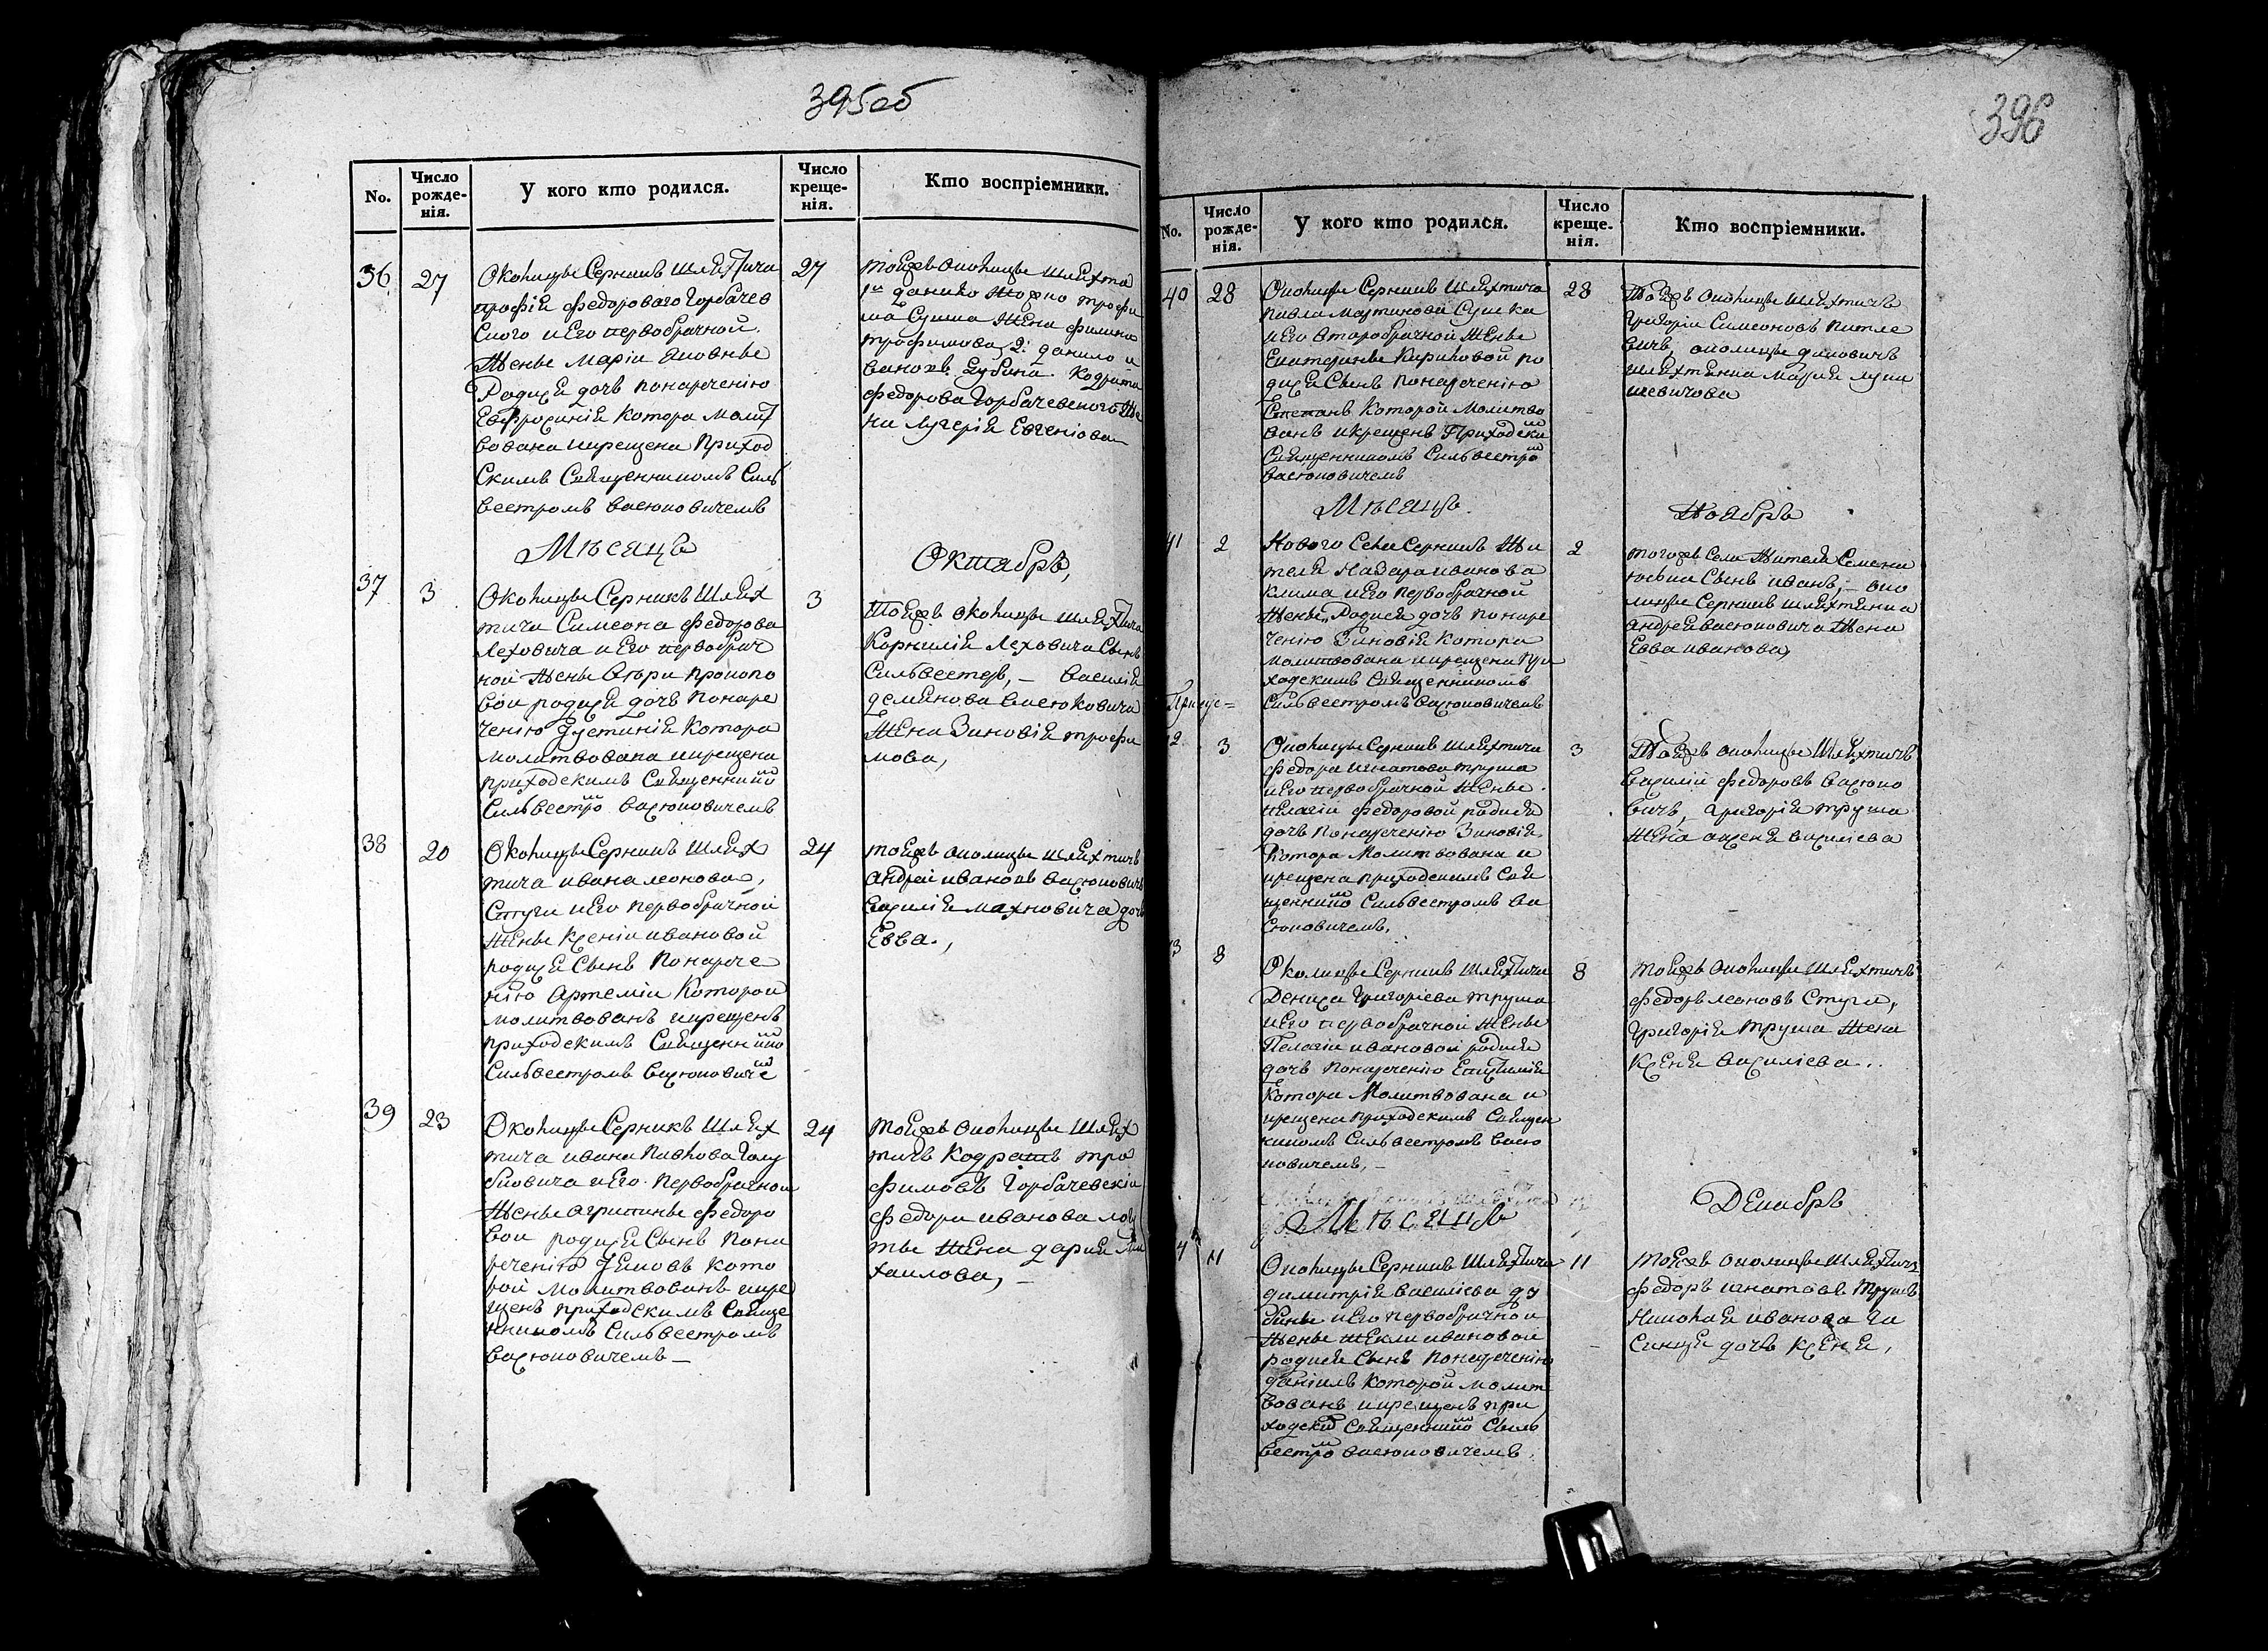 395об
No.
Число рожде-нія.
У кого кто родился.
Число креще-нія.
Кто воспріемники.
36
27
Околицы Серникъ Шляхтича
трофія федорового Горбачев
ского и Его первобрачной
Женѣ Маріи
Родися дочъ понареченію
Евфросинія котора молит
вована икрещена Приход
Скимъ Священникомъ Силь
вестромъ васюковичемъ
27
тоеяжъ околицы шляхта
1й данило
Жена филипа
трофимова, 2: данило и
вановъ Дубина. Кодрата
федорова Горбачевского Же
на Лукерія Евгеніова
Мѣсяцъ
Октябръ,
37
3
Околицы Серникъ Шлях
тича Симеона федорова
Леховича и Его первобрач
ной Женѣ прокопо
вой родися дочъ понаре
ченію Іустинія котора
молитвована икрещена
приходскимъ Священнико
Сильвестро васюковичемъ
3
Тоеяжъ околицы шляхтича
Корнилія Леховича Сынъ
Сильвестеръ, – василія
демянова васюковича
Жена Зиновія трофи
мова,
38
20
Околицы Серникъ шлях
тича ивана леонова
Стуги и Его первобрачной
Женѣ Ксеніи ивановой
родися Сынъ понарече
нію Артемій которой
молитвованъ икрещенъ
приходскимъ Священнико
Сильвестромъ васюковиче
24
тоеяжъ околицы шляхтичъ
андрей ивановъ васюковичъ
василія махновича дочъ
Евва.,
39
23
Околицы Серникъ Шлях
тича ивана Павлова Голу
бовича и Его первобрачной
Женѣ агрипинѣ федоро
вой родися Сынъ пона
реченію Іяковъ кото
рой молитвованъ икре
щенъ приходскимъ Свяще
нникомъ Сильвестромъ
васюковичемъ –
24
тоеяжъ околицы Шлях
тичъ Кодратъ тро
фимовъ Горбачевскій
федора иванова
Жена дария Ми
хаилова, –
396
No.
Число рожде-нія.
У кого кто родился.
Число креще-нія.
Кто воспріемники.
40
28
Околицы Серникъ Шляхтича
павла мартинова Сушка
и Его второбрачной Женѣ
Екатеринѣ Кириловой ро
дися Сынъ понареченію
Степанъ которой молитво
ванъ икрещенъ Приходски
Священникомъ Сильвестро
васюковичемъ
28
Тоеяжъ околицы шляхтичъ
Григорій Симеоновъ
вичъ, околицы
шляхтянка Мария
шевичова
Мѣсяцъ
Ноябръ
41
2
Нового Села Серникъ Жи
теля Назара иванова
клима и Его первобрачной
Женѣ Родися дочъ понаре
ченію Зиновія котора
молитвована икрещена при
ходскимъ Священникомъ
Сильвестромъ васюковичемъ
2
тогожъ Села Жителя Семена
Сынъ иванъ, – око
лицы Серникъ шляхтянка
андрея васюковича Жена
Евва иванова,
42
3
Околицы Серникъ шляхтича
федора игнатова труша
и Его первобрачной Женѣ
пелагіи федоровой родися
дочъ понареченію Зиновія
Котора Молитвована и
крещена приходскимъ Свя
щеннико Сильвестромъ ва
сюковичемъ.
3
Тоеяжъ околицы Шляхтичъ
василій федоровъ васюко
вичъ, григорія труша
Жена василіева
43
8
Околицы Серникъ Шляхтича
Дениса Григоріева труша
и Его первобрачной Женѣ
Пелагіи ивановой родися
дочъ понареченію
котора Молитвована и
крещена приходскимъ Священ
никомъ Сильвестромъ васю
ковичемъ, –
8
тоеяжъ околицы Шляхтичъ
федоръ леоновъ Стуга,
Григорія Труша Жена
Ксеня василіева..
Мѣсяцъ
Декабръ
11
Околицы Серникъ Шляхтича
димитрія василіева ду
бины и Его первобрачной
Женѣ ивановой
родися Сынъ понареченію
даніилъ которой молит
вованъ икрещенъ при
ходски Священнико Силь
вестро васюковичемъ.
11
тоеяжъ околицы шляхтичъ
федоръ игнатовъ Трушъ
Николая иванова
дочъ Ксеня,